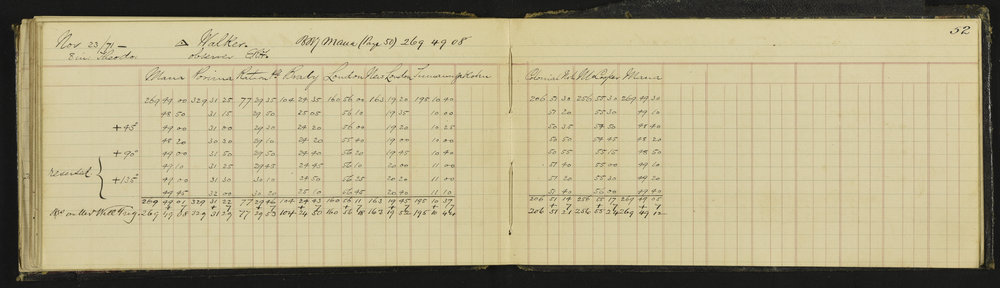 52
Nov 23/71 – △ Walker. Mana (Page 50) 269 49 08
8 in Theodo. observer
Mana Porirua Brady London New London Colonial Mana
269 49 00 329 31 25 77 29 35 104 24 35 160 56 00 163 19 20 195 10 40 206 51 30 256 55 30 269 49 30
48 50 31 15 29 50 25 05 56 10 19 35 10 00 51 20 55 30 49 10
+45° 49 00 31 00 29 30 24 20 56 00 19 20 10 25 50 35 54 50 48 40
48 20 30 20 29 10 24 20 55 40 19 00 10 00 50 50 54 45 48 20
+90° 49 00 31 50 29 50 24 40 56 20 19 45 10 40 50 55 55 15 48 50
reversed 49 10 31 25 29 45 24 45 56 10 20 00 11 00 51 40 55 00 49 10
+135° 49 00 31 30 30 10 24 50 56 25 20 20 11 00 51 20 55 30 49 20
49 45 32 00 30 20 25 10 56 45 20 40 11 10 51 40 56 00 49 40
269 49 01 329 31 22 77 29 46 104 24 43 160 56 11 163 19 45 195 10 37 206 51 14 256 55 17 269 49 05
+7 +7 +7 +7 +7 +7 +7 +7 +7 +7
269 49 08 329 31 29 77 29 53 104 24 50 160 56 18 163 19 52 195 10 44 206 51 21 256 55 24 269 49 12